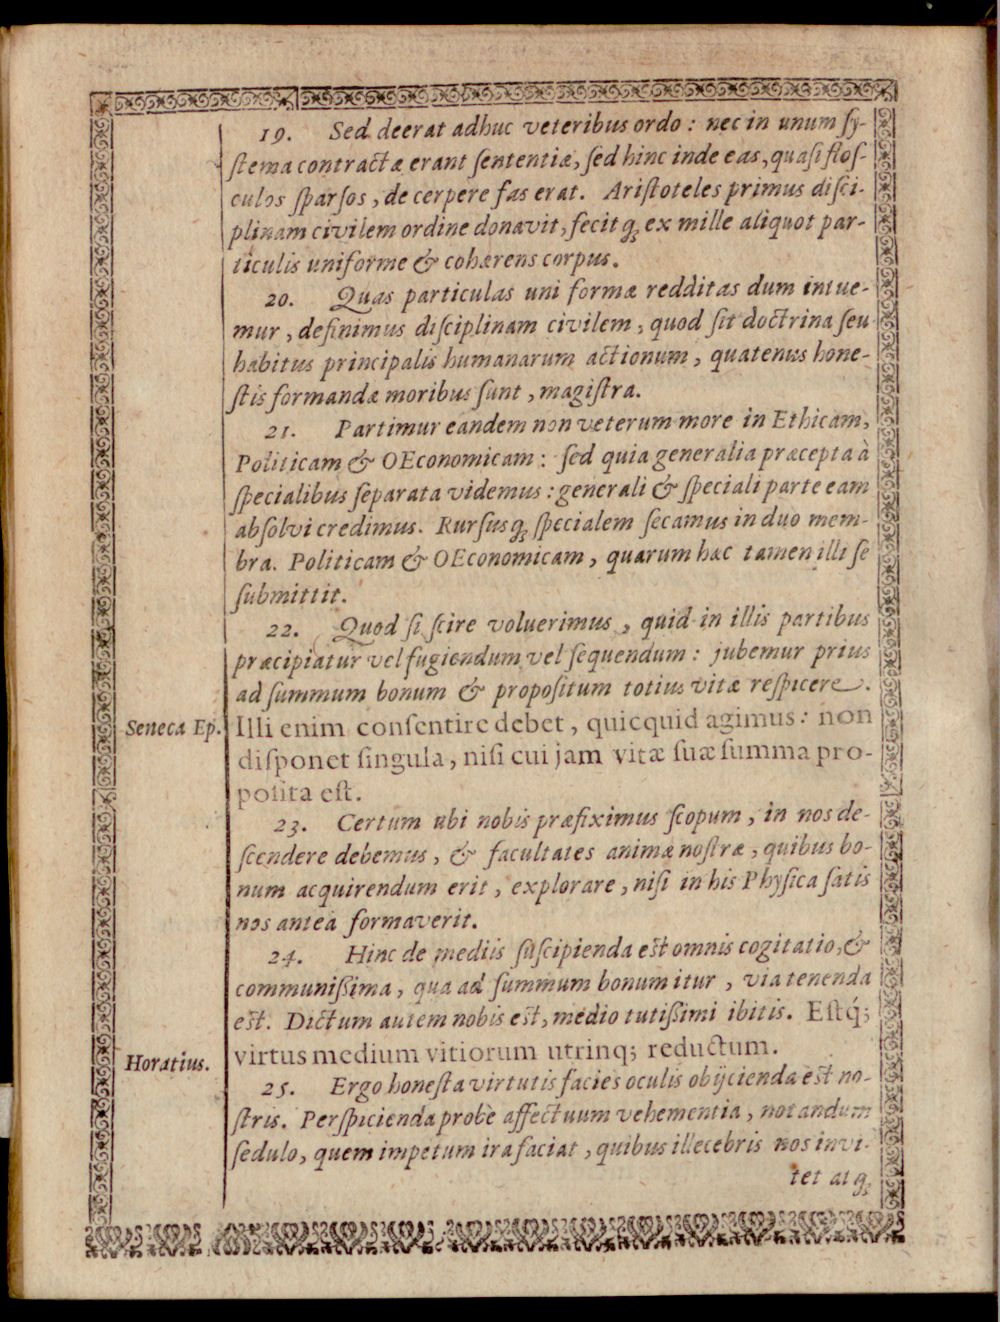 19. Sed deerat adhuc veteribus ordo: nec in unum ſy-
ſtema contractæ erant ſententiæ, ſed hinc inde eas, quaſi floſ-
culos ſparſos, de cerpere fas erat. Ariſtoteles primus diſci-
plinam civilem ordine donavit, fecitq́; ex mille aliquot par-
ticulis uniforme & cohærens corpus.
20. Quas particulas uni formæ redditas dum intue-
mur, definimus diſciplinam civilem, quod ſit doctrina ſeu
habitus principalis humanarum actionum, quatenus hone-
ſtis formandæ moribus ſunt, magiſtra.
21. Partimur eandem non veterum more in Ethicam,
Politicam & OEconomicam: ſed quia generalia præcepta à
ſpecialibus ſeparata videmus: generali & ſpeciali parte eam
abſolvi credimus. Rurſusq́; ſpecialem ſecamus in duo mem-
bra. Politicam & OEconomicam, quarum hæc tamen illi ſe
ſubmittit.
22. Quod ſi ſcire voluerimus, quid in illis partibus
præcipiatur vel fugiendum vel ſequendum: jubemur prius
ad ſummum bonum & propoſitum totius vitæ reſpicere.
Seneca Ep. Illi enim conſentire debet, quicquid agimus: non
diſponet ſingula, niſi cui jam vitæ ſuæ ſumma pro-
poſita eſt.
23. Certum ubi nobis præfiximus ſcopum, in nos de-
ſcendere debemus, & facultates animæ noſtræ, quibus bo-
num acquirendum erit, explorare, niſi in his Phyſica ſatis
nos antea formaverit.
24. Hinc de mediis ſuſcipienda eſt omnis cogitatio, &
communißima, qua ad ſummum bonum itur, via tenenda
eſt. Dictum autem nobis eſt, medio tutißimi ibitis. Eſtq́;
Horatius. virtus medium vitiorum utrinq; reductum.
25. Ergo honeſta virtutis facies oculis obijcienda eſt no-
ſtris. Perſpicienda probè affectuum vehementia, notandum
ſedulo, quem impetum ira faciat, quibus illecebris nos invi-
tet atq́;